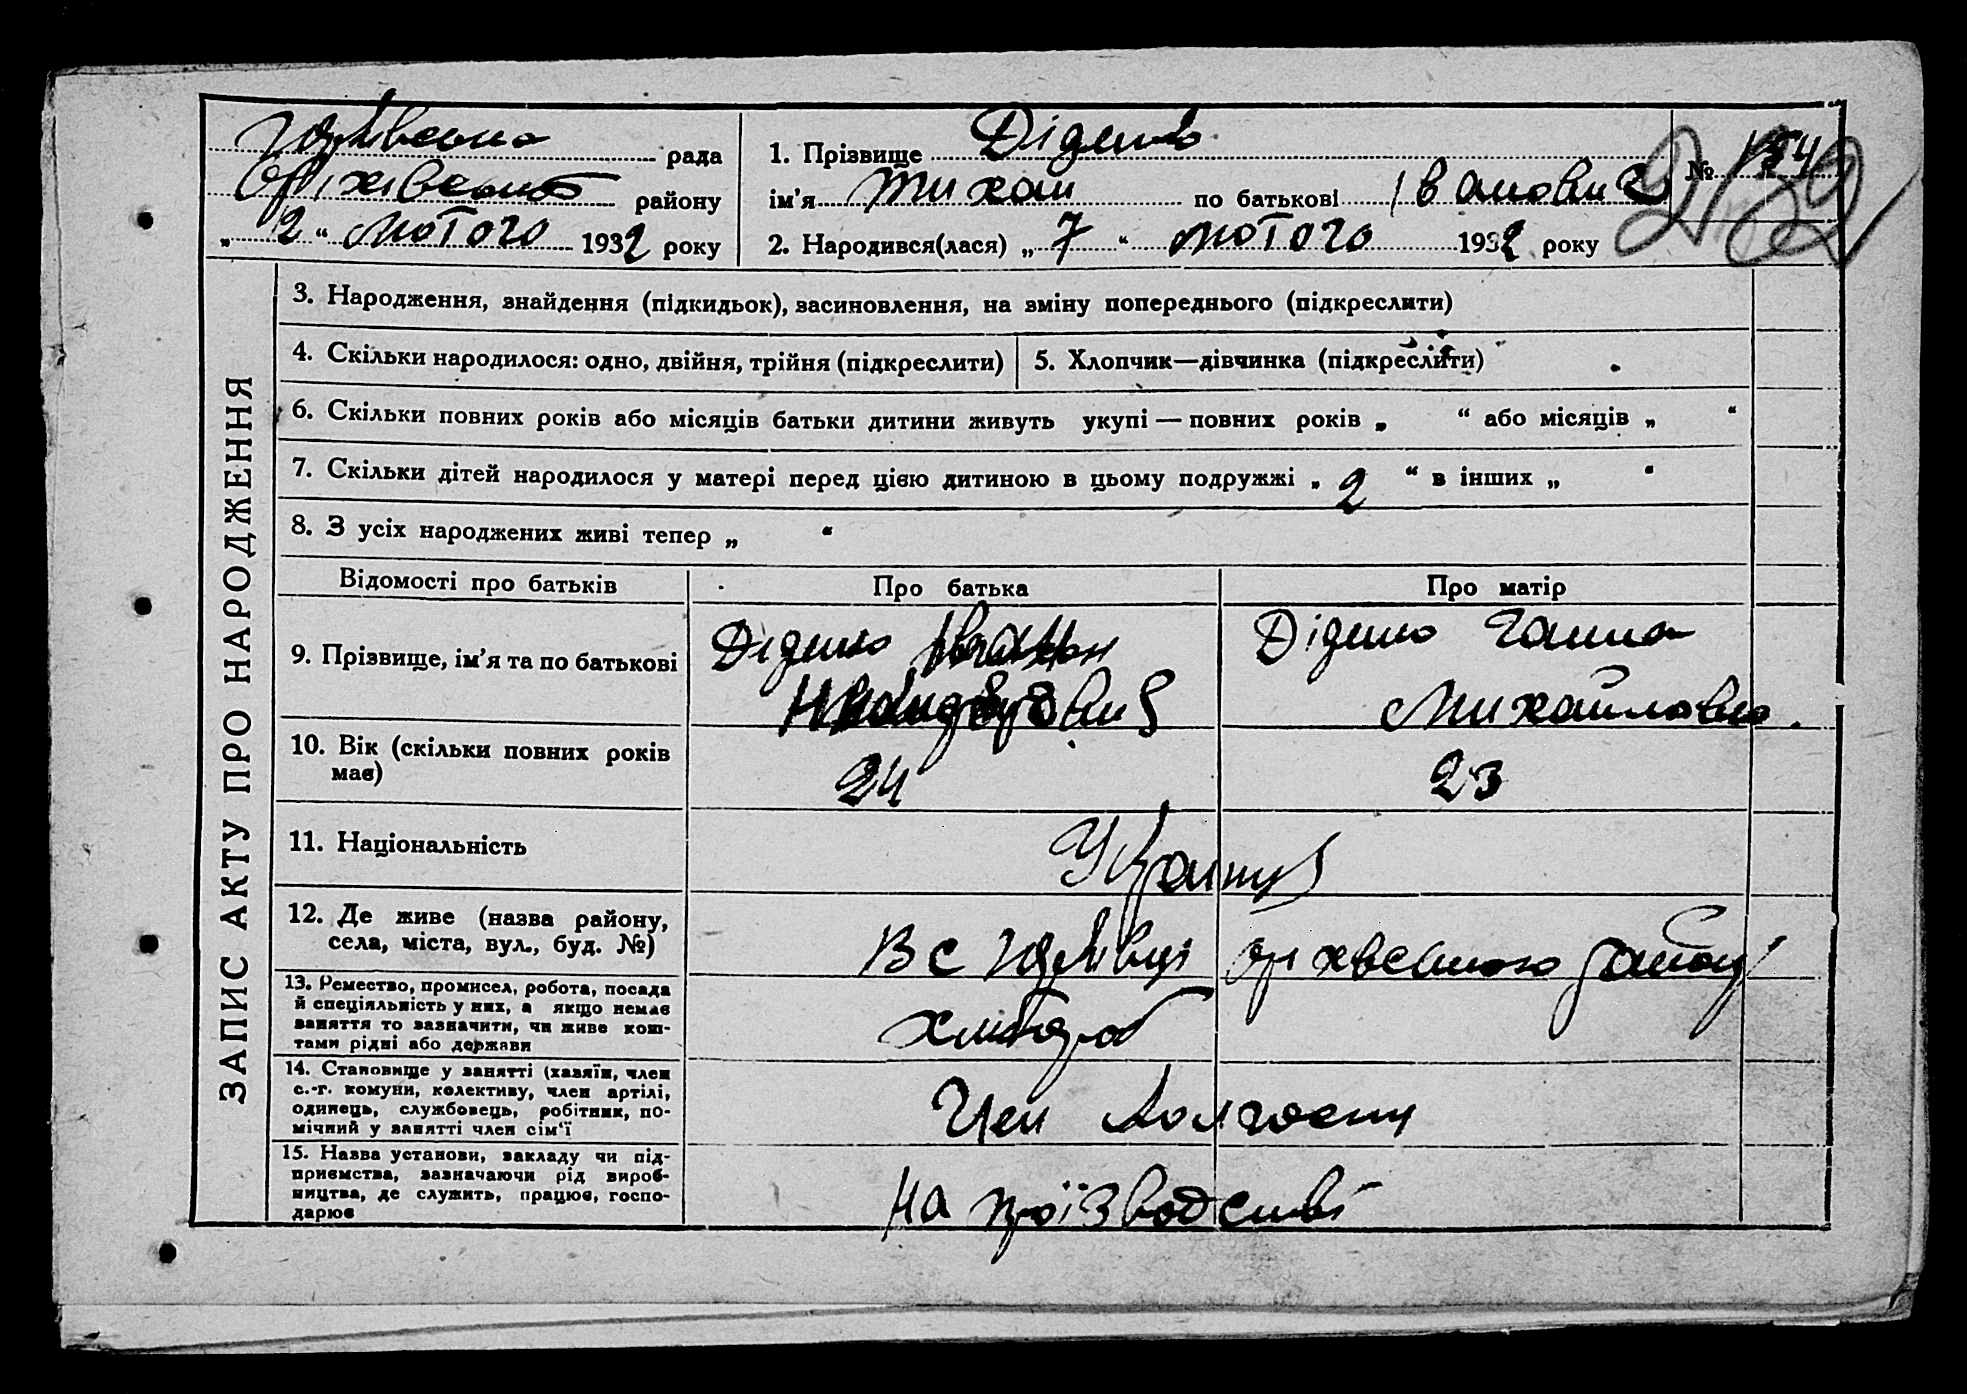 рада
Оріхівського району
„ 2 “ лютого 1932 року
1. Прізвище Діденко
ім'я Тихон по батькові Іванович
2. Народився(лася) „ 7 “ лютого 1932 року
№
ЗАПИС АКТУ ПРО НАРОДЖЕННЯ
3. Народження, знайдення (підкидьок), засиновлення, на зміну попереднього (підкреслити)
4. Скільки народилося: одно, двійня, трійня (підкреслити)
5. Хлопчик—дівчинка (підкреслити)
6. Скільки повних років або місяців батьки дитини живуть укупі — повних років „ “ або місяців „ “
7. Скільки дітей народилося у матері перед цією дитиною в цьому подружжі „ 2 “ в інших „ “
8. З усіх народжених живі тепер „ “
Відомості про батьків
Про батька
Про матір
9. Прізвище, ім'я та по батькові
Діденко
Діденко Ганна
Михайловна.
10. Вік (скільки повних років
має)
24
23
11. Національність
Українці
12. Де живе (назва району,
села, міста, вул., буд. №)
В с Оріхівського району
13. Ремество, промисел, робота, посада
й спеціяльність у них, а якщо немає
заняття то зазначити, чи живе кош-
тами рідні або держави
хлібороб
14. Становище у занятті (хазяїн, член
с.-г. комуни, колективу, член артілі,
одинець, службовець, робітник, по-
мічний у занятті член сім'ї
Член колгоспу
15. Назва установи, закладу чи під-
приємства, зазначаючи рід вироб-
ництва, де служить, працює, госпо-
дарює
На проізводстві